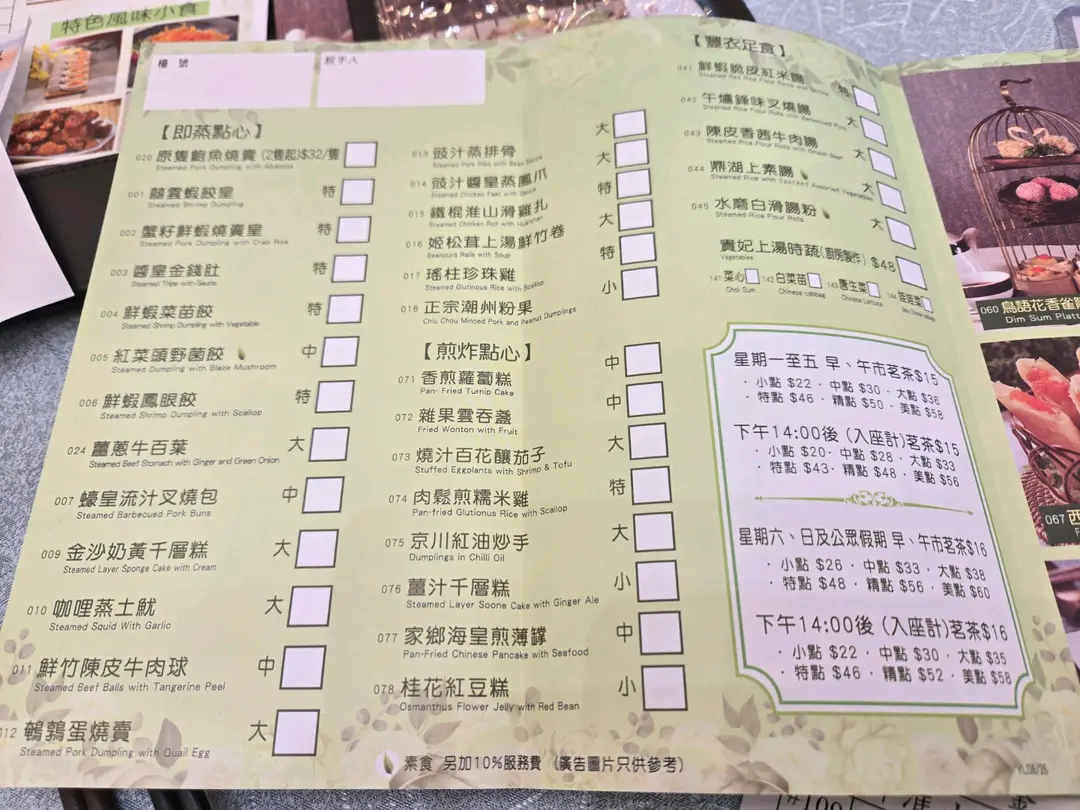 特色風味小食
檯 號
經手人
【即蒸點心】
020 原隻鮑魚燒賣 (2隻起)$32/隻
Steamed Pork Dumpling with Abalone
001 囍雲蝦餃皇 特
Steamed Shrimp Dumpling
002 蟹籽鮮蝦燒賣皇 特
Steamed Pork Dumpling with Crab Roe
003 醬皇金錢肚 特
Steamed Tripe with Sauce
004 鮮蝦菜苗餃 特
Steamed Shrimp Dumpling with Vegetable
005 紅菜頭野菌餃 中
Steamed Dumpling with Blaze Mushroom
006 鮮蝦鳳眼餃 特
Steamed Shrimp Dumpling with Scallop
024 薑蔥牛百葉 大
Steamed Beef Stomach with Ginger and Green Onion
007 蠔皇流汁叉燒包 中
Steamed Barbecued Pork Buns
009 金沙奶黃千層糕 大
Steamed Layer Sponge Cake with Cream
010 咖哩蒸土魷 大
Steamed Squid With Garlic
011 鮮竹陳皮牛肉球 中
Steamed Beef Balls with Tangerine Peel
012 鵪鶉蛋燒賣 大
Steamed Pork Dumpling with Quail Egg
013 豉汁蒸排骨 大
Steamed Pork Ribs with Bean Sauce
014 豉汁醬皇蒸鳳爪 大
Steamed Chicken Feet with Sauce
015 鐵棍淮山滑雞扎 特
Steamed Chicken Roll with Huaishan
016 姬松茸上湯鮮竹卷 大
Beancurd Rolls with Soup
017 瑤柱珍珠雞 特
Steamed Glutinous Rice with Scallop
018 正宗潮州粉果 小
Chiu Chou Minced Pork and Peanut Dumplings
【煎炸點心】
071 香煎蘿蔔糕 中
Pan- Fried Turnip Cake
072 雜果雲吞盞 中
Fried Wonton with Fruit
073 燒汁百花釀茄子 大
Stuffed Eggplants with Shrimp & Tofu
074 肉鬆煎糯米雞 特
Pan-fried Glutionus Rice with Scallop
075 京川紅油炒手 大
Dumplings in Chilli Oil
076 薑汁千層糕 小
Steamed Layer Soone Cake with Ginger Ale
077 家鄉海皇煎薄罉 中
Pan-Fried Chinese Pancake with Seafood
078 桂花紅豆糕 小
Osmanthus Flower Jelly with Red Bean
【豐衣足食】
041 鮮蝦脆皮紅米腸 特
Steamed Red Rice Flour Rolls with Shrimp
042 午爐鋒味叉燒腸 大
Steamed Rice Flour Rolls with Barbecued Pork
043 陳皮香茜牛肉腸 大
Steamed Rice Flour Rolls with Onion Beef
044 鼎湖上素腸 大
Steamed Rice with Sauteed Assorted Vegetables
045 水磨白滑腸粉 大
Steamed Rice Flour Rolls
貴妃上湯時蔬(廚房製作) $48
Vegetables
141 菜心 142 白菜苗 143 唐生菜 144
Choi Sum Chinese cabbag Chinese Lettuce
星期一至五 早、午市茗茶$15
· 小點 $22 · 中點 $30 · 大點 $36
· 特點 $46 · 精點 $50 · 美點 $58
下午14:00後 (入座計)茗茶$15
· 小點 $20 · 中點 $28 · 大點 $33
· 特點 $43 · 精點 $48 · 美點 $56
星期六、日及公眾假期 早、午市茗茶$16
· 小點 $26 · 中點 $33 · 大點 $38
· 特點 $48 · 精點 $56 · 美點 $60
下午14:00後 (入座計)茗茶$16
· 小點 $22 · 中點 $30 · 大點 $35
· 特點 $46 · 精點 $52 · 美點 $58
素食 另加10%服務費 (廣告圖片只供參考)
060 鳥語花香雀籠
Dim Sum Platt
067 西